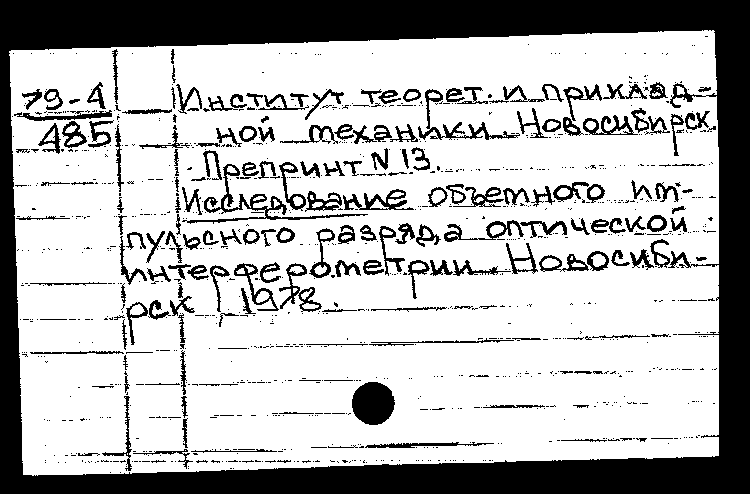 79-4 Институт теорет. и приклад-
485 ной механики. Новосибирск.
Препринт N 13.
Исследование объемного им-
пульсного разряда оптической
интерферометрии. Новосиби-
рск, 1978.